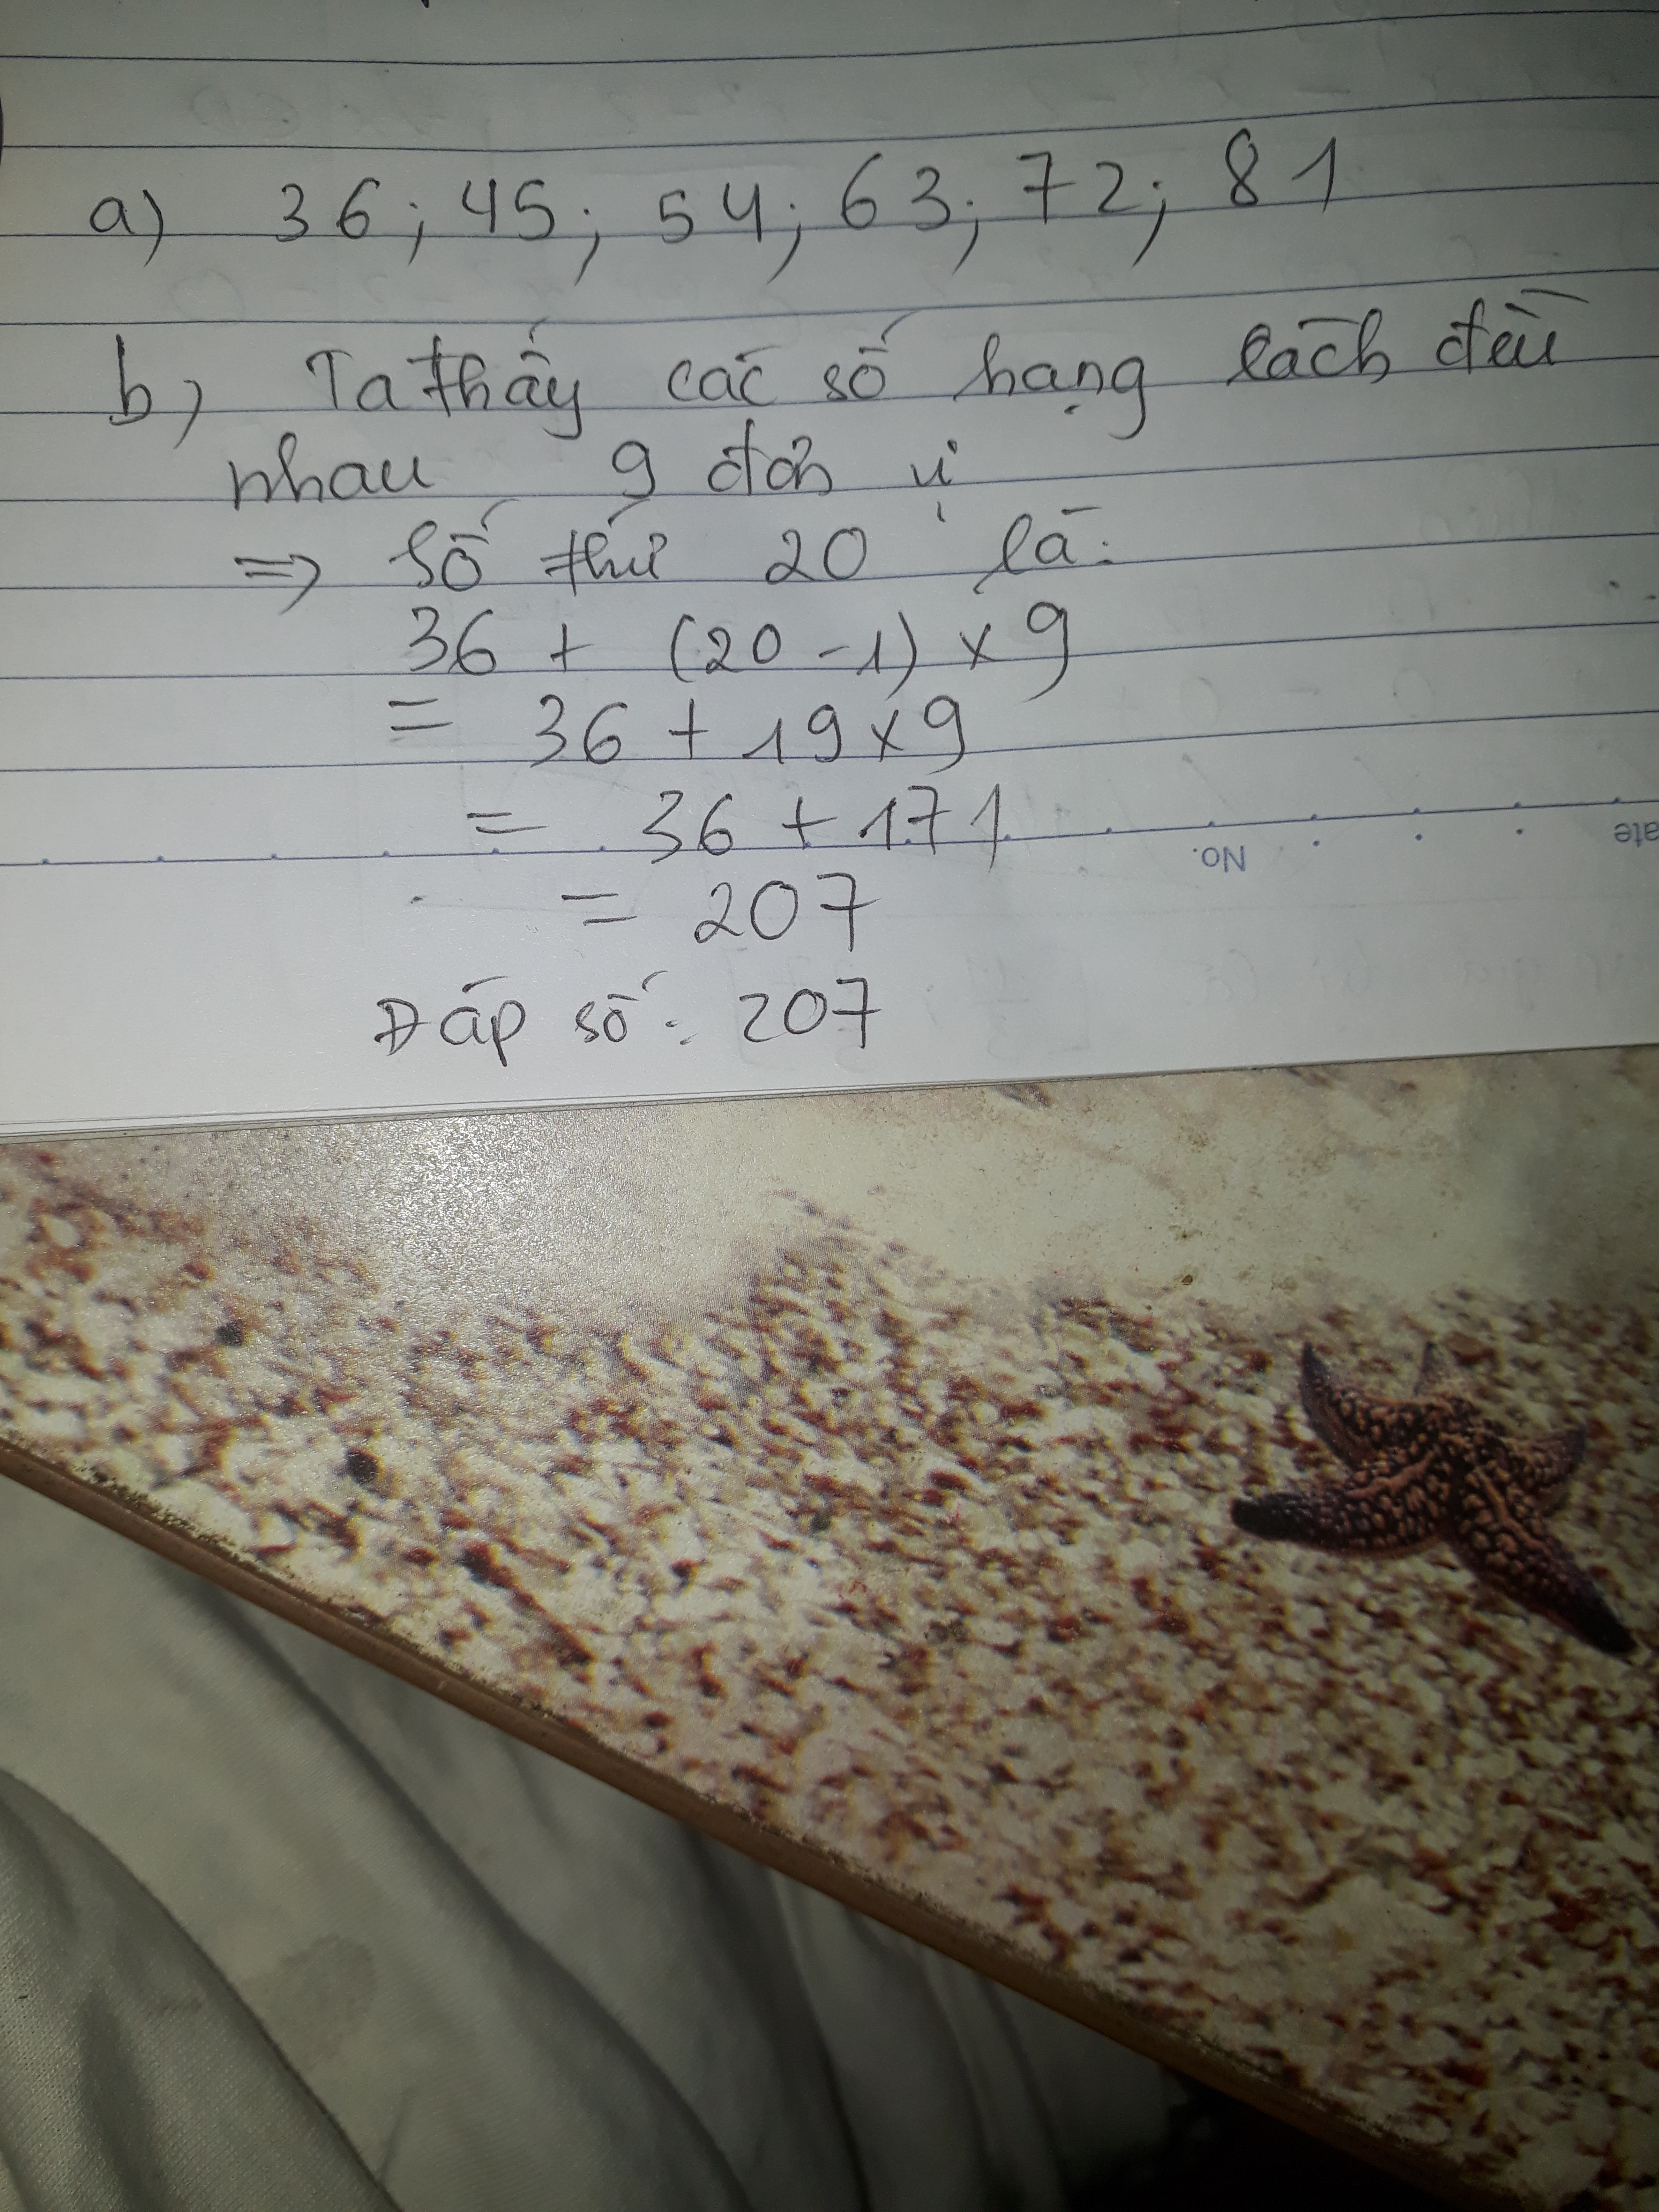 a) 36; 45; 54; 63; 72; 81
b, Ta thấy các số hạng cách đều
nhau 9 đơn vị
=> Số thứ 20 là:
36 + (20 - 1) x 9
= 36 + 19 x 9
= 36 + 171
No.
ate
= 207
Đáp số: 207